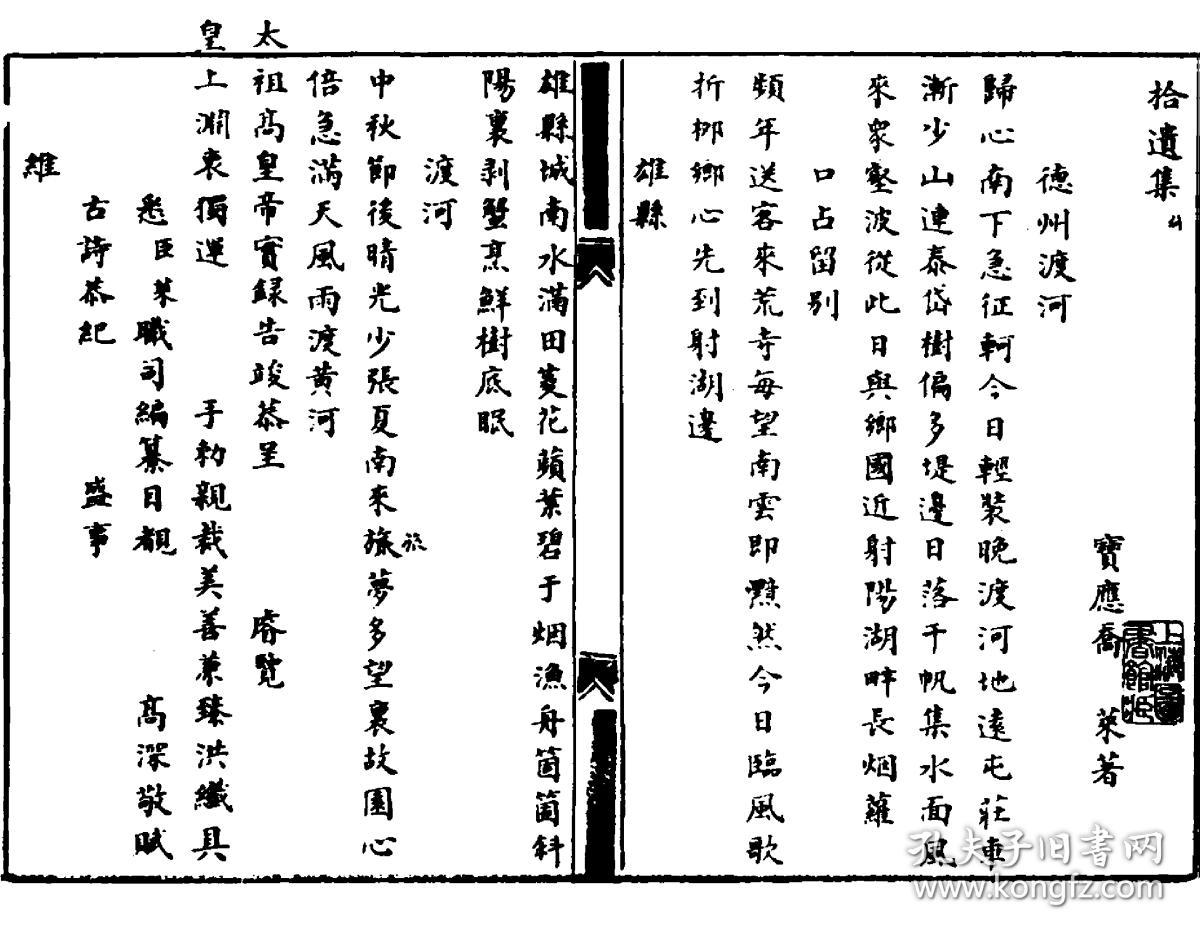 拾遺集
寶應喬 萊著
德州渡河
歸心南下急征軻今日輕裝晚渡河地遠屯莊車
漸少山連泰岱樹偏多堤邊日落千帆集水面風
來衆壑波從此日與鄉國近射陽湖畔長烟蘿
口占留别
頻年送客來荒寺每望南雲即黯然今日臨風歌
折栁鄉心先到射湖邊
雄縣
雄縣城南水滿田菱花蘋葉碧于烟漁舟箇箇斜
陽裏剥蟹烹鮮樹底眠
渡河
中秋節後晴光少張夏南來旅夢多望裏故園心
旅
倍急滿天風雨渡黄河
太祖髙皇帝實録告竣恭呈 睿覽
皇上淵衷獨運 手勅親裁美善兼臻洪纖具
悉臣萊職司編纂目覩 髙深敬賦
古詩恭紀 盛事
維
孔夫子旧書网
www.kongfz.com